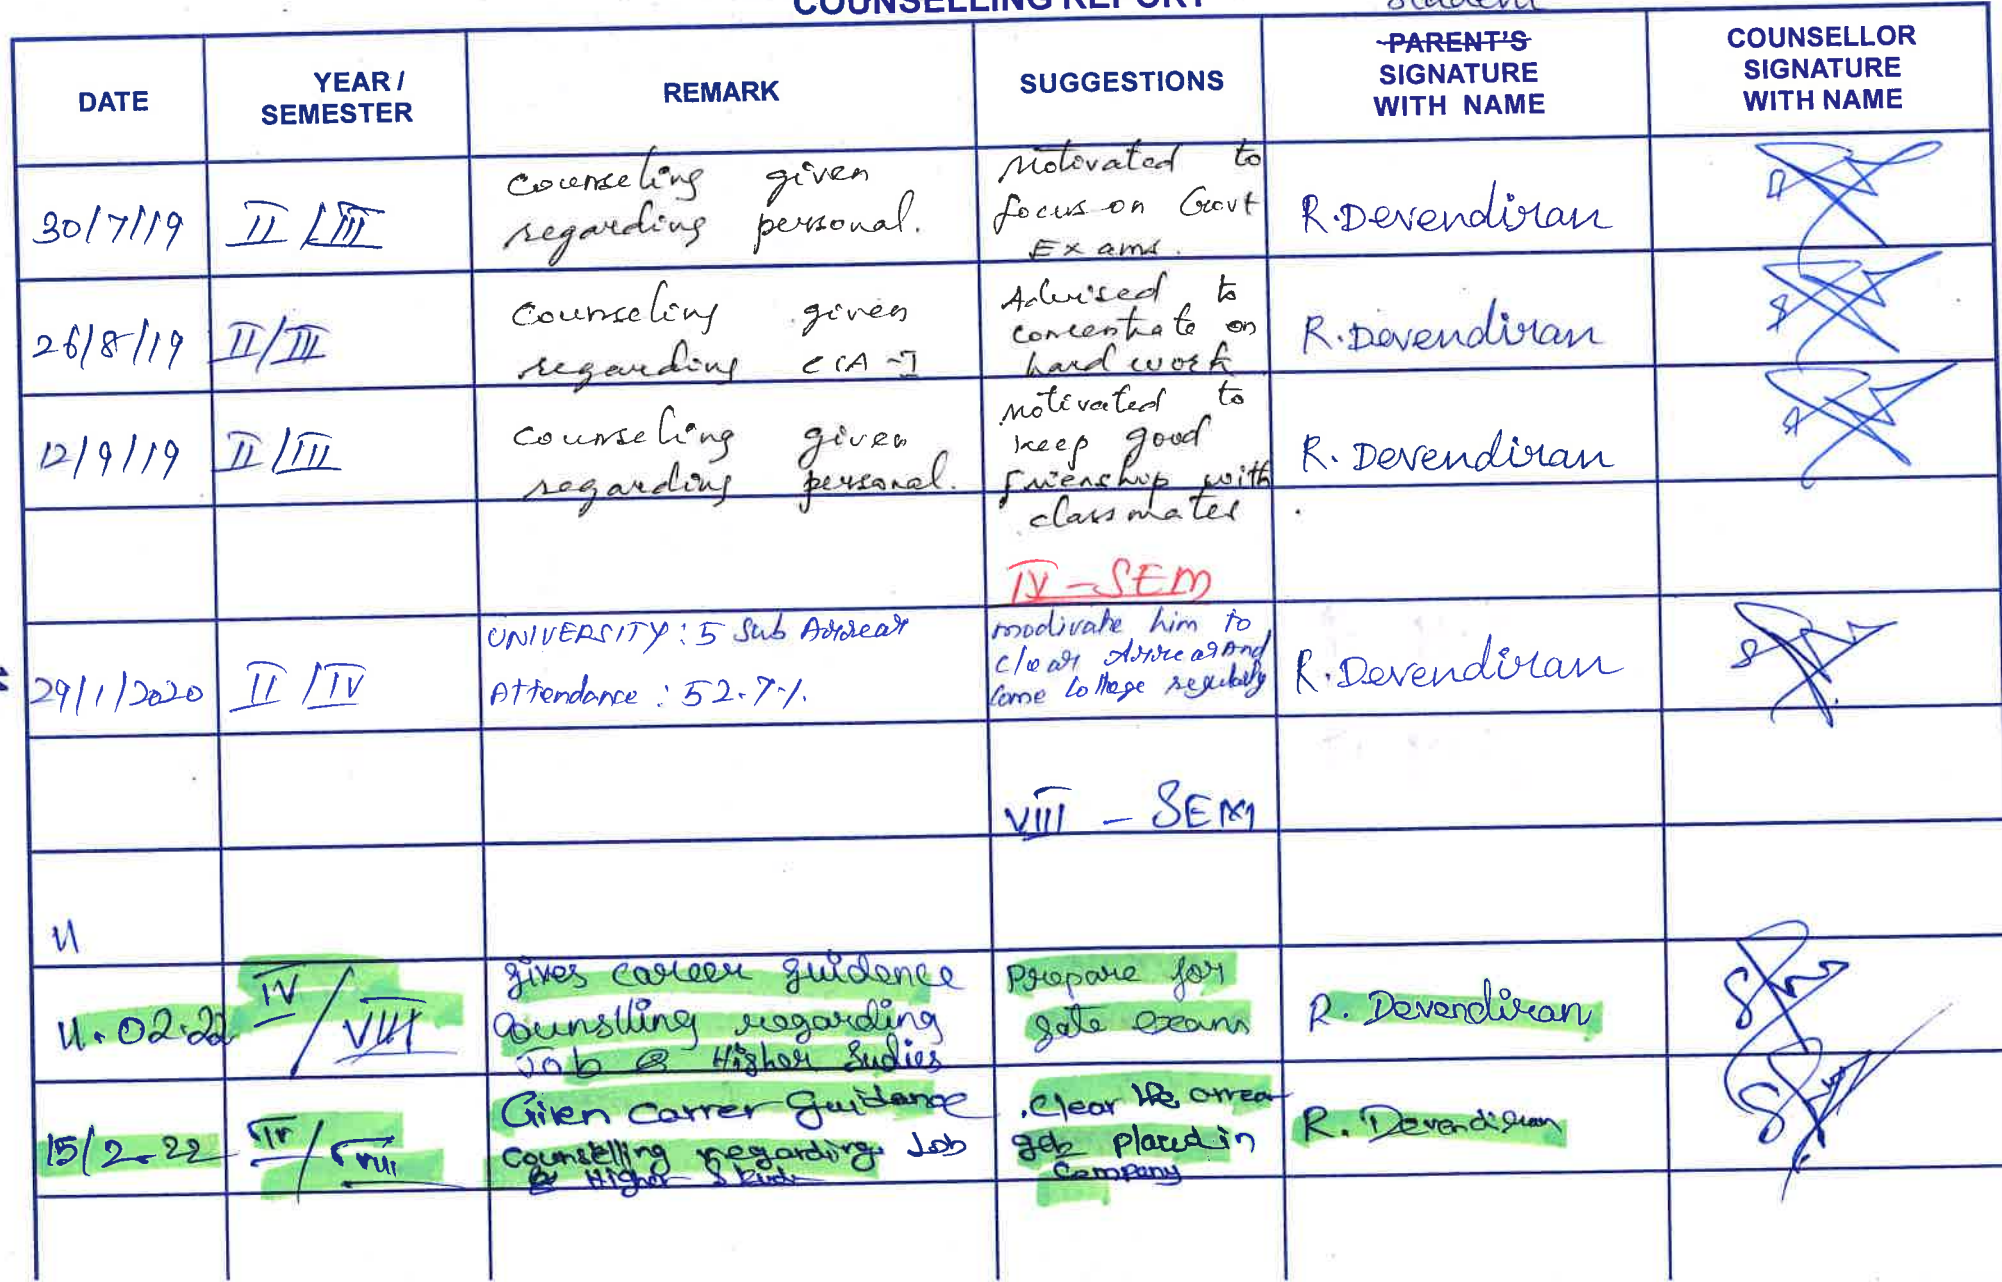 COUNSELLING REPORT
Student
DATE
YEAR /
SEMESTER
REMARK
SUGGESTIONS
PARENT'S
SIGNATURE
WITH NAME
COUNSELLOR
SIGNATURE
WITH NAME
30/7/19
II / III
Counseling given
regarding personal.
Motivated to
focus on Govt
Exams.
R.Devendiran
26/8/19
II/III
Counseling given
regarding CIA-I
Adviced to
concentrate on
hard work
R.Devendiran
12/9/19
II/III
Counseling given
regarding personal.
Motivated to
keep good
frienship with
classmates
R. Devendiran
IV - SEM
29/1/2020
II / IV
UNIVERSITY : 5 Sub Arrear
Attendance : 52.7%.
modivate him to
clear Arrear And
Come College regularly
R.Devendiran
VIII - SEM
11
11.02.22
IV / VIII
gives career guidence
Counslling regarding
Job & Higher Sudies
Prepare for
gate exam
R. Devendiran
15/2-22
IV / VIII
Given Carrer Guidance
counselling regarding Job
& Higher
Clear the arrear
placed in
Company
R. Devendiran